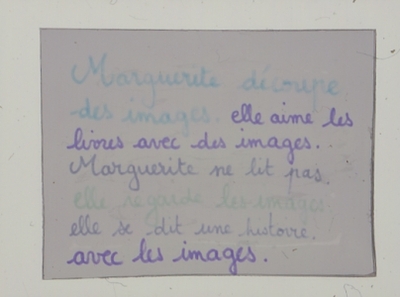 Marguerite découpe
des images. elle aime les
livres avec des images.
Marguerite ne lit pas.
elle regarde les images.
elle se dit une histoire.
avec les images.